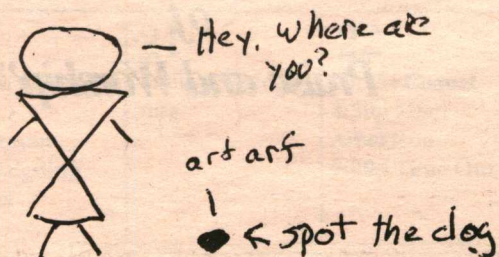 Hey. where are
you?
arf arf
< spot the dog